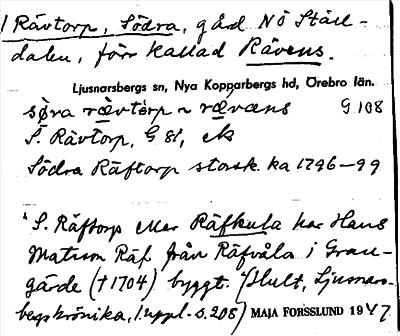 1 Rävtorp, Södra, gård NÖ Ställ-
dalen, förr kallad Rävens.
Ljusnarsbergs sn, Nya Kopparbergs hd, Örebro län.
søra rævtorp ~ rævæns G 108
S. Rävtorp, G 81, ek
Södra Räftorp storsk. ka 1796–99
"S. Räftorp eller Räfkula har Hans
Matsson Räf från Räfvåla i Gran-
gärde († 1704) byggt." (Hult, Ljusnars-
bergskrönika, 1. uppl. s. 208) MAJA FORSSLUND 1947.